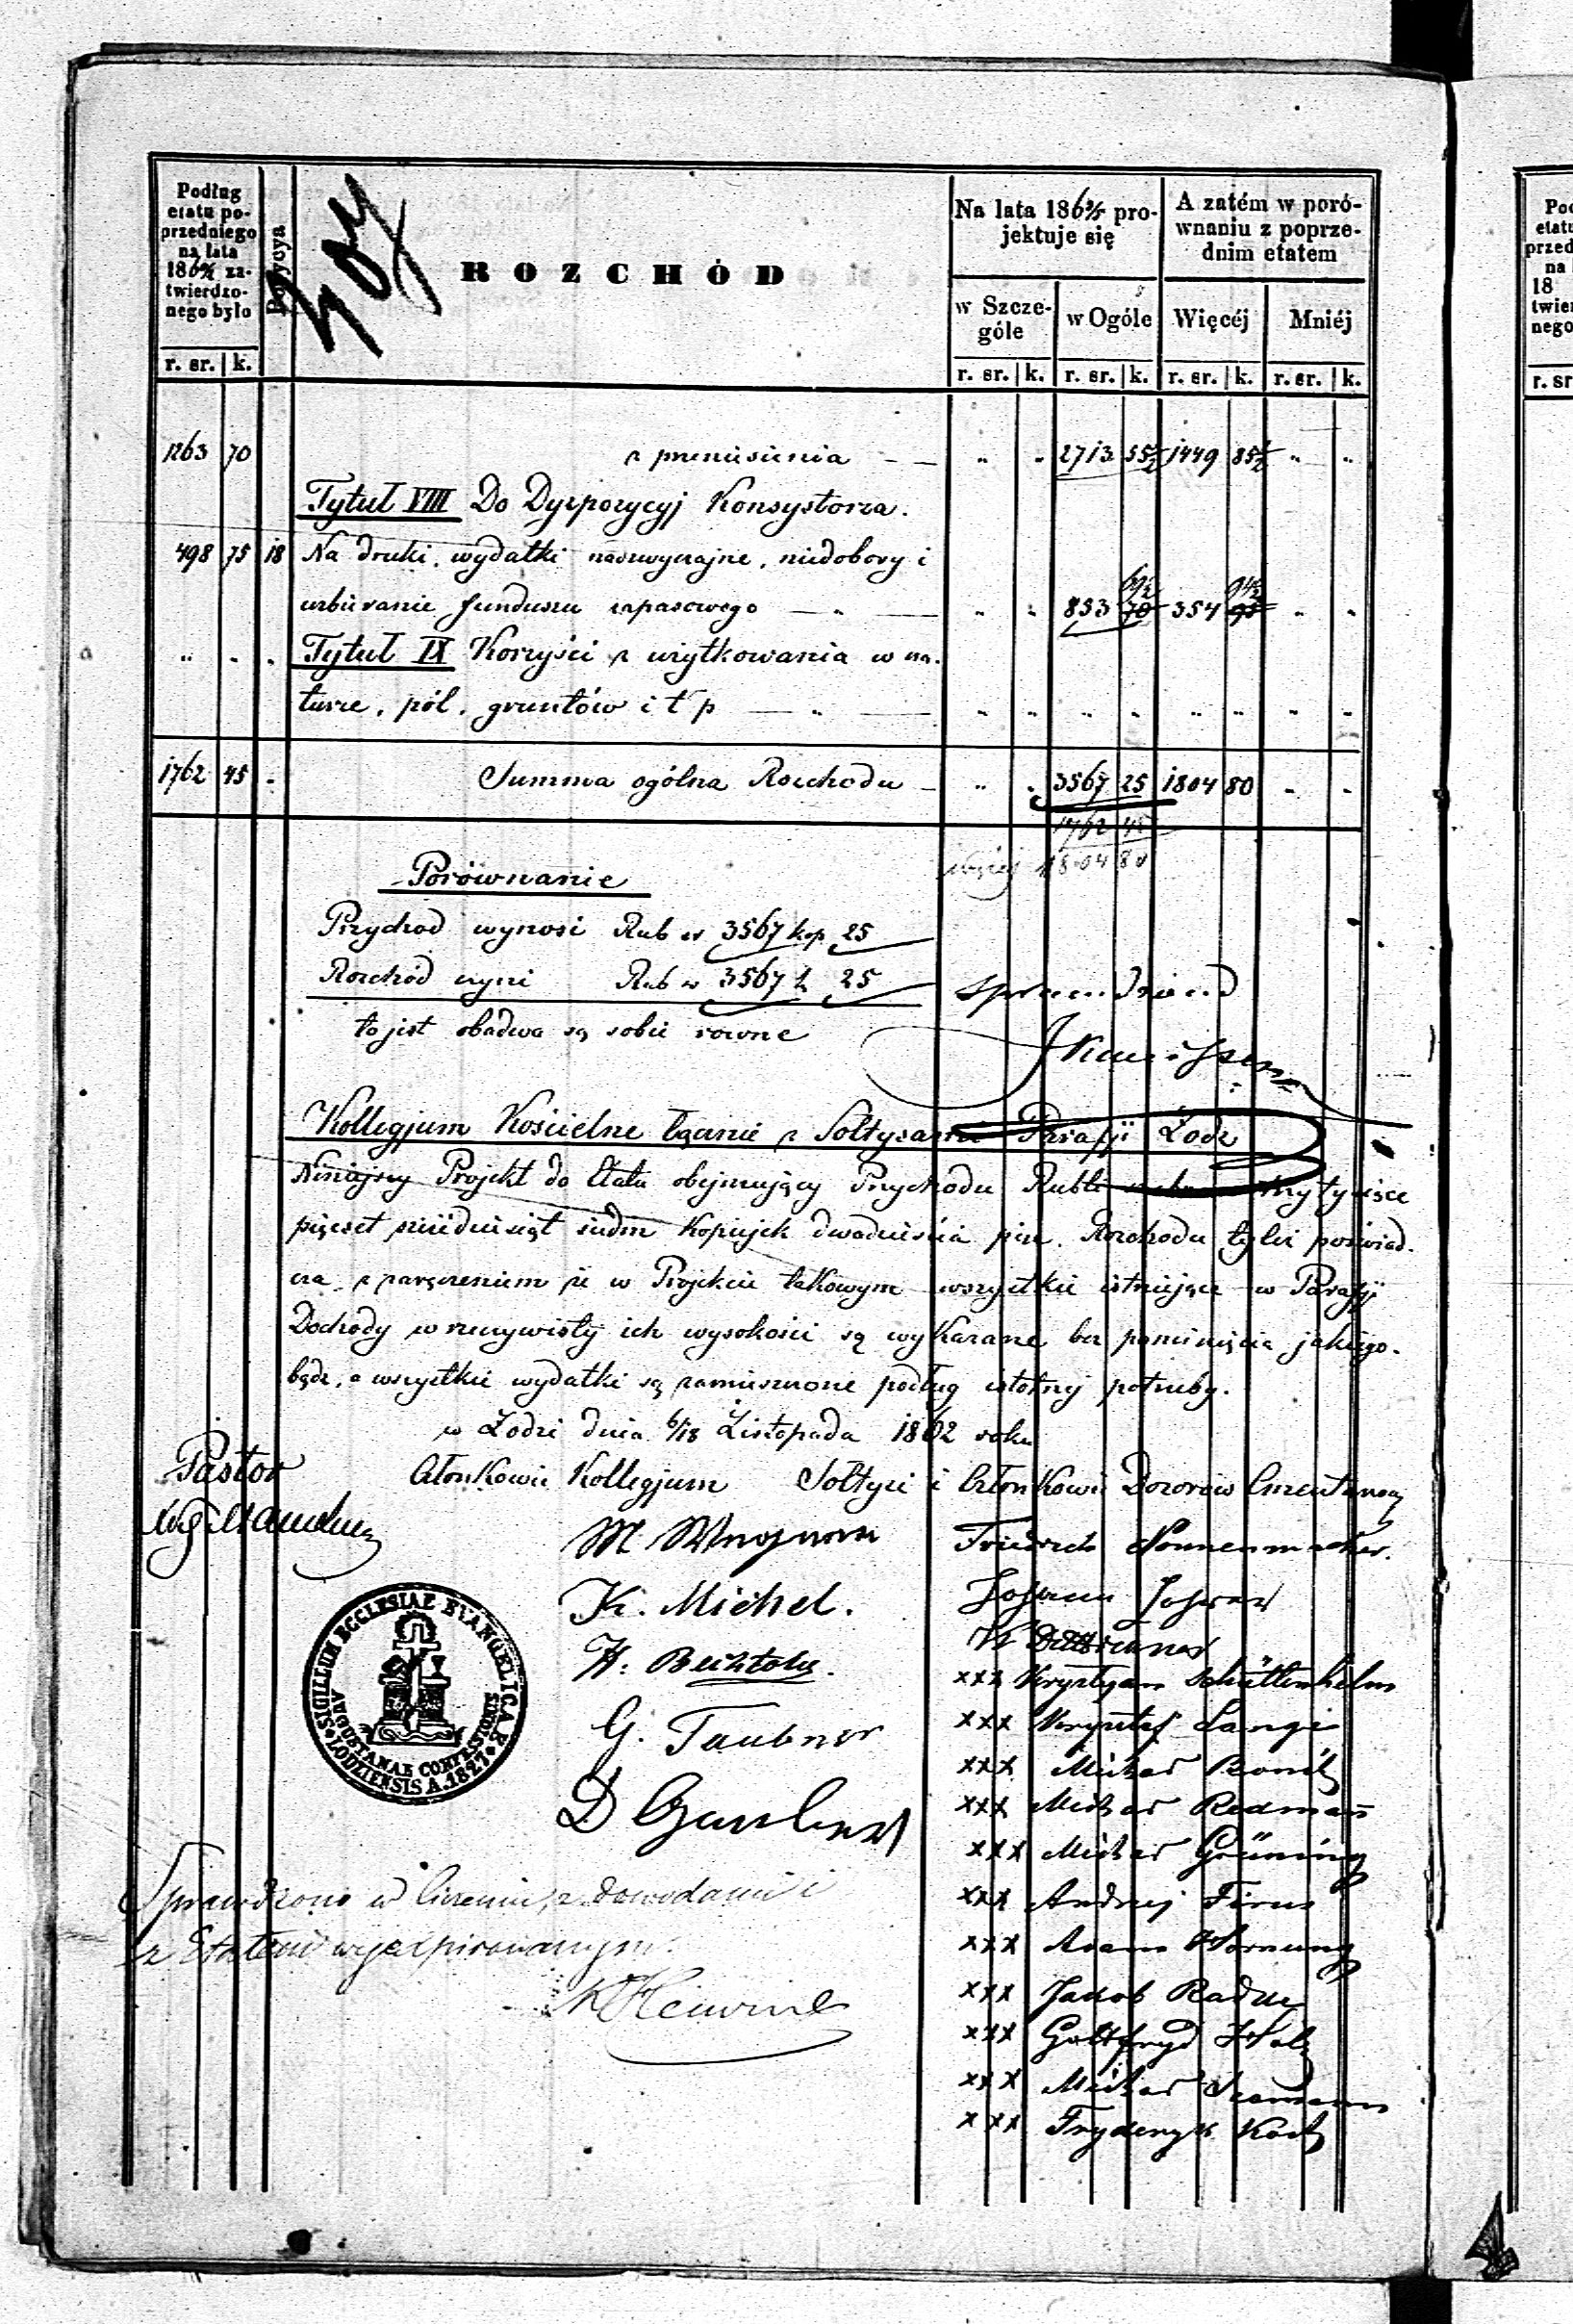 Podług etatu poprzedniego na lata 186 zatwierdzonego było
Pozycya
ROZCHÓD
Na lata 186 projektuje się
A zatém w porównaniu z poprzednim etatem
w Szczególe
w Ogóle
Więcéj
Mniéj
r. sr. k. r. sr. k. r. sr. k. r. sr. k. r. sr. k.
1263 70 z przeniesienia 2713 55½ 1449 85½
Tytuł VIII Do Dyspozycyj Konsystorza.
498 75 18 Na druki, wydatki nadzwyczajne, niedobory i
uzbieranie funduszu zapasowego 853 69½ 354 94½
Tytuł IX Korzyści z użytkowania w na-
turze, pól, gruntów i t p
1762 45 Summa ogólna Rozchodu 3567 25 1804 80
1762 45
więcej 1804 80
Porównanie
Przychod wynosi Rub sr 3567 kop 25
Rozchód wyni Rub sr 3567 k 25
to jest obadwa są sobie rowne
Sprawdził
Kollegjum Kościelne łącznie z Sołtysami Parafji Łodz
Niniejszy Projekt do Etatu obejmujący Przychodu Rubli trzy tysiące
pięćset sześćdziesiąt siedm Kopiejek dwadzieścia pięć. Rozchodu tyleż poświad-
cza z zaręczeniem że w Projekcie takowym wszystkie istniejące w Parafji
Dochody w rzeczywistej ich wysokości są wykazane bez pominięcia jakiego-
bądź, a wszystkie wydatki są zamieszczone podług istotnej potrzeby.
w Łodzi dnia 6/18 Listopada 1862 roku
Pastor
Członkowie Kollegjum
Sołtysi i Członkowie Dozorów Cmentarnych
K. Michel.
G. Taubner
Friedrich Nonnenmacher.
xxx Krystyan Schüttenhelm
xxx Krysztof Lange
xxx Michał
xxx Michał Redmann
xxx Michał Grüning
xxx Andrzej Firus
xxx Adam Hornung
xxx Jakob Radke
xxx Gottfryd
xxx Michał
xxx Fryderyk Koch
SIGILLUM ECCLESIAE EVANGELICAE
AUGUSTANAE CONFESSIONIS
LODZIENSIS A. 1827
Sprawdzono w liczeniu, z dowodami i
z Etatem